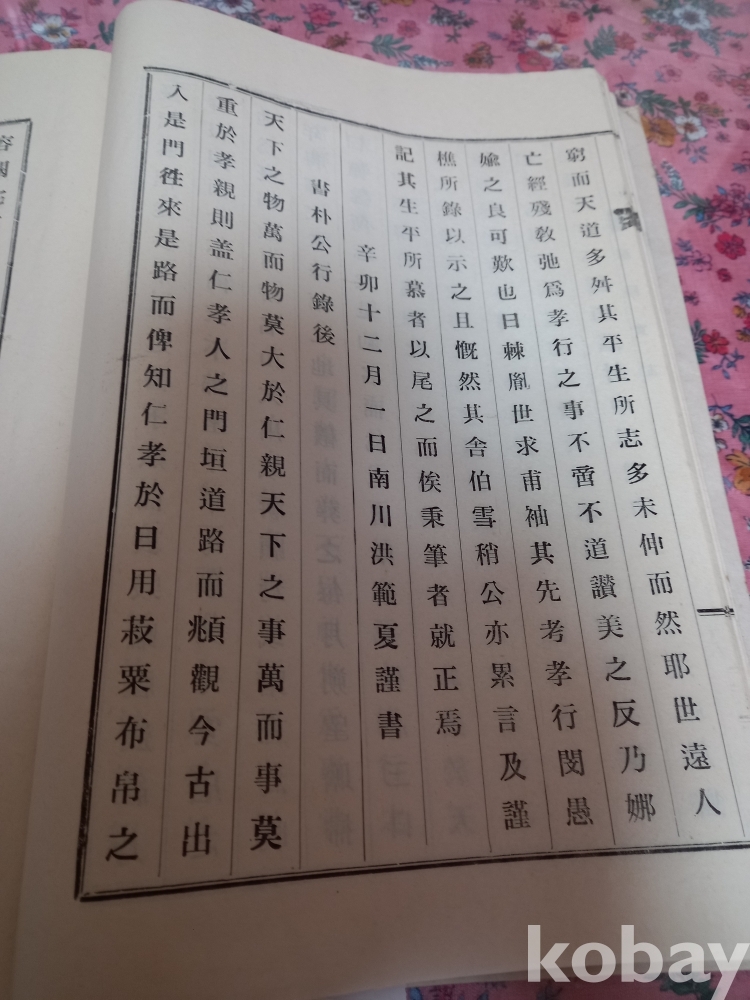 窮而天道多舛其平生所志多未伸而然耶世遠人
亡經殘敎弛爲孝行之事不啻不道讃美之反乃娜
婾之良可歎也日棘胤世求甫袖其先考孝行閔愚
樵所錄以示之且慨然其舍伯雪稍公亦累言及謹
記其生平所慕者以尾之而俟秉筆者就正焉
辛卯十二月一日南川洪範夏謹書
書朴公行錄後
天下之物萬而物莫大於仁親天下之事萬而事莫
重於孝親則盖仁孝人之門垣道路而頫觀今古出
入是門徃來是路而俾知仁孝於日用菽粟布帛之
kobay